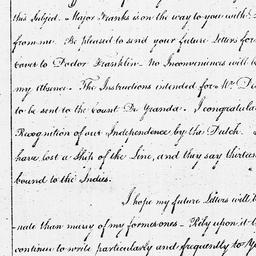 this Subject. - Major Franks is on the way to you with
from me. Be pleased to send your future Letters for
Cover to Doctor Franklin - No Inconveniences will be
my Absence. - The Instructions intended for Mr. Du
to be sent to the Count De Granda. I congratula
Recognition of our Independence by the Dutch.
have lost a Ship of the Line, and they say thirteen
bound to the Indies.
I hope my future Letters will,
-nate than many of my former ones - Rely upon it
continue to write particularly and frequently to